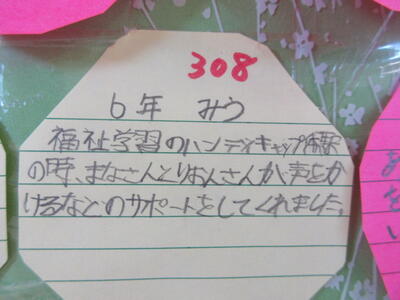 308
6年 みう
福祉学習のハンディキャップ体験
の時、まなさんとりおんさんが、声をか
けるなどのサポートをしてくれました。